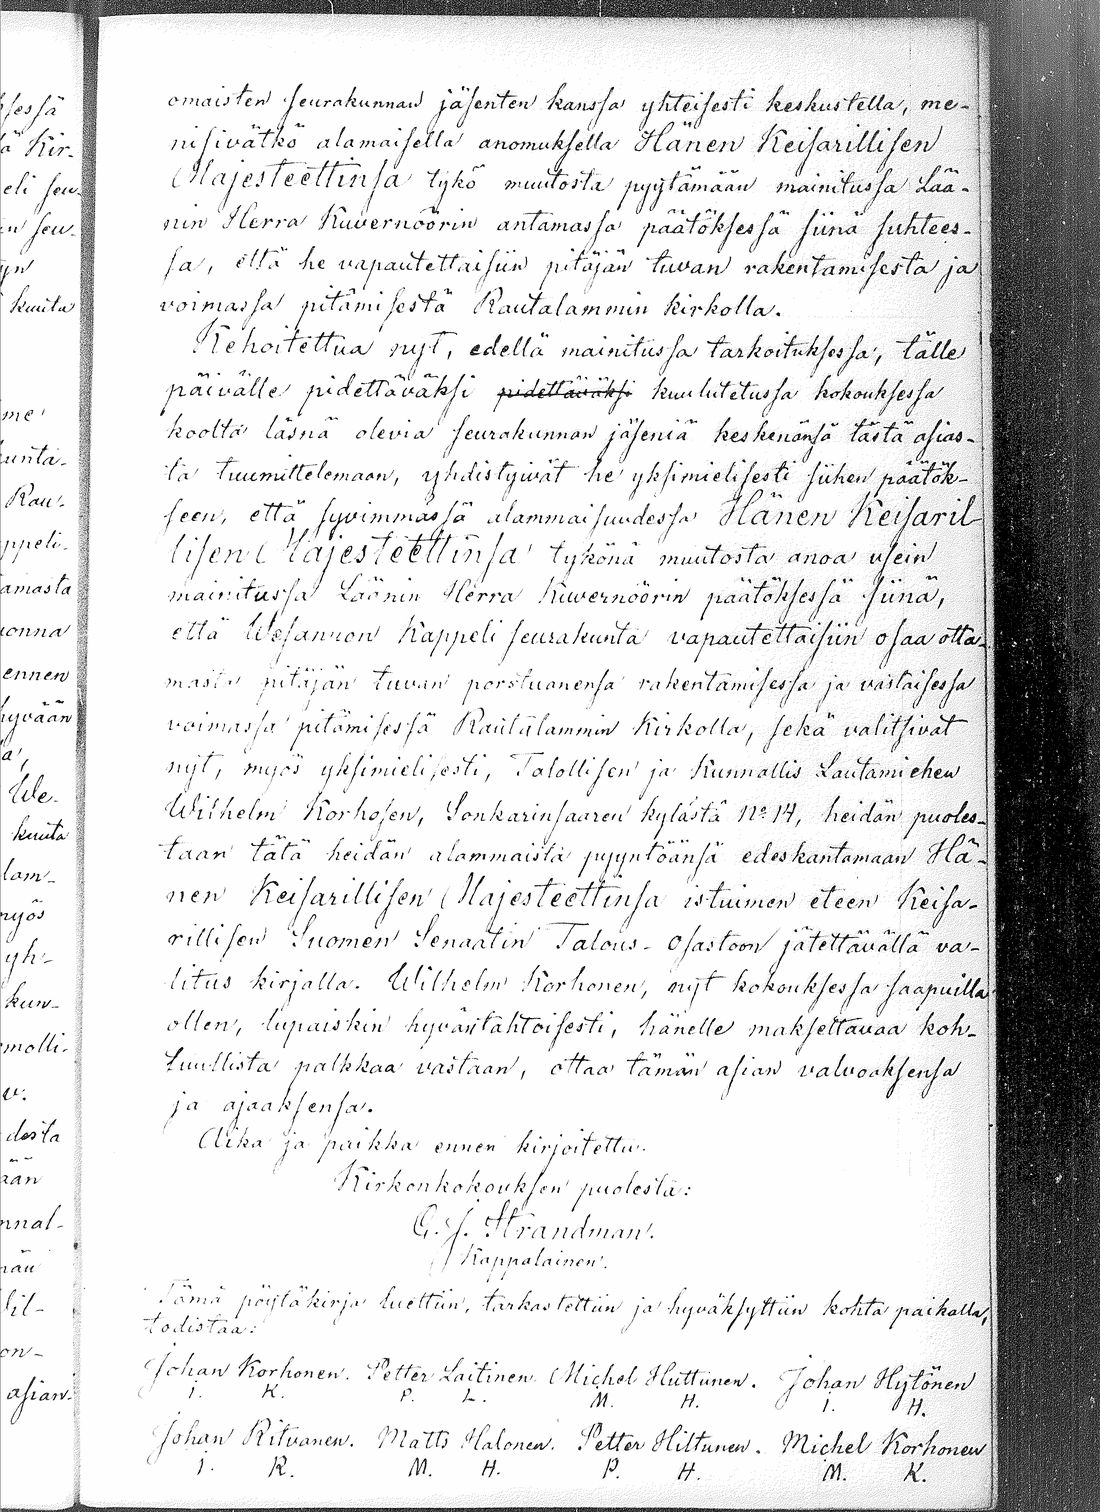 omaisten seurakunnan jäsenten kanssa yhteisesti keskustella, me-
nisivätkö alamaisella anomuksella Hänen Keisarillisen
Majesteettinsa tykö muutosta pyytämään mainitussa Lää-
nin Herra Kuvernöörin antamassa päätöksessä siinä suhtees-
sa, että he vapautettaisiin pitäjän tuvan rakentamisesta ja
voimassa pitämisestä Rautalammin kirkolla.
Kehoitettua nyt, edellä mainitussa tarkoituksessa, tälle
päivälle pidettäväksi pidettäväksi kuulutetussa kokouksessa
koolta läsnä olevia seurakunnan jäseniä keskenänsä tästä asias-
ta tuumittelemaan, yhdistyivät he yksimielisesti siihen päätök-
seen, että syvimmässä alammaisuudessa Hänen Keisaril
lisen Majesteettinsa tykönä muutosta anoa usein
mainitussa Läänin Herra Kuvernöörin päätöksessä siinä,
että Wesannon Kappeli seurakunta vapautettaisiin osaa otta-
masta pitäjän tuvan porstuanensa rakentamisessa ja vastaisessa
voimassa pitämisessä Rautalammin Kirkolla, sekä valitsivat
nyt, myös yksimielisesti, Talollisen ja Kunnallis Lautamiehen
Wilhelm Korhosen, Sonkarinsaaren kylästä No 14, heidän puoles-
taan tätä heidän alammaista pyyntöänsä edeskantamaan Hä-
nen Keisarillisen Majesteettinsa istuimen eteen Keisa-
rillisen Suomen Senaatin Talous-Osastoon jätettävällä va-
litus kirjalla. Wilhelm Korhonen, nyt kokouksessa saapuilla
ollen, lupaiskin hyväntahtoisesti, hänelle maksettavaa koh-
tuullista palkkaa vastaan, ottaa tämän asian valvoaksensa
ja ajaaksensa.
Aika ja paikka ennen kirjoitettu.
Kirkonkokouksen puolesta:
G. J. Strandman.
Kappalainen.
Tämä pöytäkirja luettiin, tarkastettiin ja hyväksyttiin kohta paikalla,
todistaa:
Johan Korhonen. Petter Laitinen. Michel Huttunen. Johan Hytönen
I. K. P. L. M. H. I. H.
Johan Ritvanen. Matts Halonen. Petter Hiltunen. Michel Korhonen
I. R. M. H. P. H. M. K.